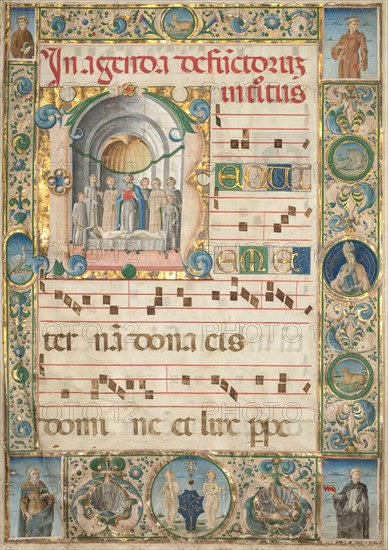 In agenda defūctorū
intītus
REQUI
EM E
ter nā dona eis
domi ne et lux ppe